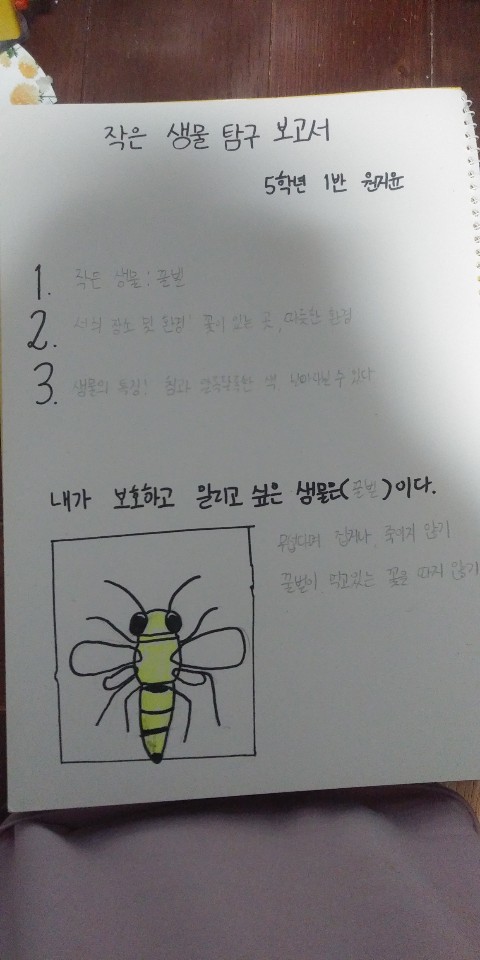 작은 생물 탐구 보고서
5학년 1반 원지윤
1. 작은 생물: 꿀벌
2. 서식 장소 및 환경: 꽃이 있는 곳, 따뜻한 환경
3. 생물의 특징: 침과 알록달록한 색, 날아다닐 수 있다
내가 보호하고 알리고 싶은 생물은(꿀벌)이다.
무섭다며 잡거나, 죽이지 않기
꿀벌이 먹고있는 꽃을 따지 않기